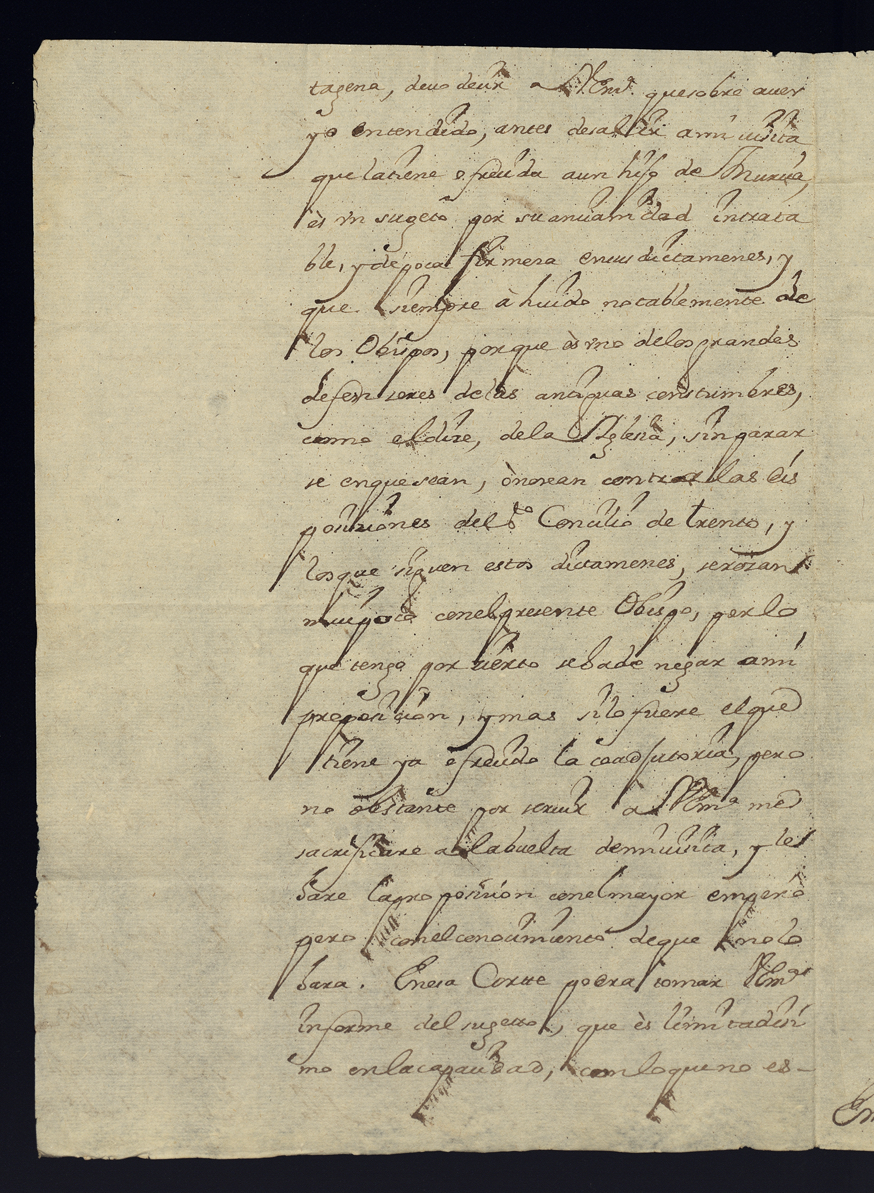 tagena, devo decir a V.Em.ª que sobre aver
yo entendido, antes de salir a mi visita
que la tiene ofrecida a un hijo de Murcia,
ès vn sugeto por su ancianidad intrata
ble, y de poca firmeza en sus dictamenes, y
que siempre à huido notablemente de
los Obispos, porque ès vno de los grandes
defensores de las antiguas constumbres,
como el dize, de la Yglesia, sin parar
se en que sean, ò no sean contra las dis
posiciones del S.to Concilio de trento, y
los que siguen estos dictamenes, se rozan
mui poco con el presente Obispo, por lo
que tengo por cierto se ha de negar a mi
proposicion, y mas si lo fuere el que
tiene ya ofrecido la coadjutoria, pero
no obstante por servir a V.Em.ª me
sacrificare a la buelta de mi visita, y le
hare la proposicion con el mayor empeño
pero con el conocimiento de que no lo
hara. En esa Corte podra tomar V.Em.ª
informe del sugetto, que ès limitadisi
mo en la capacidad, con lo que no es-
En